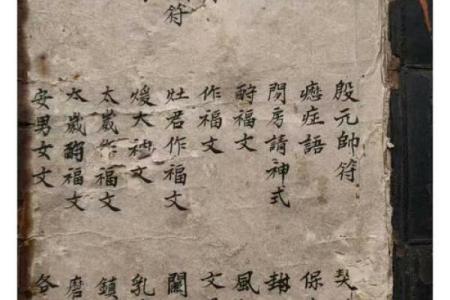 符
殷元帥符
症語
房請神式
酧福文
作福文
灶君作福文
煖大文
太歲作福文
太歲酧福文
安男女文
契
保
風
文
乳
鎮
各